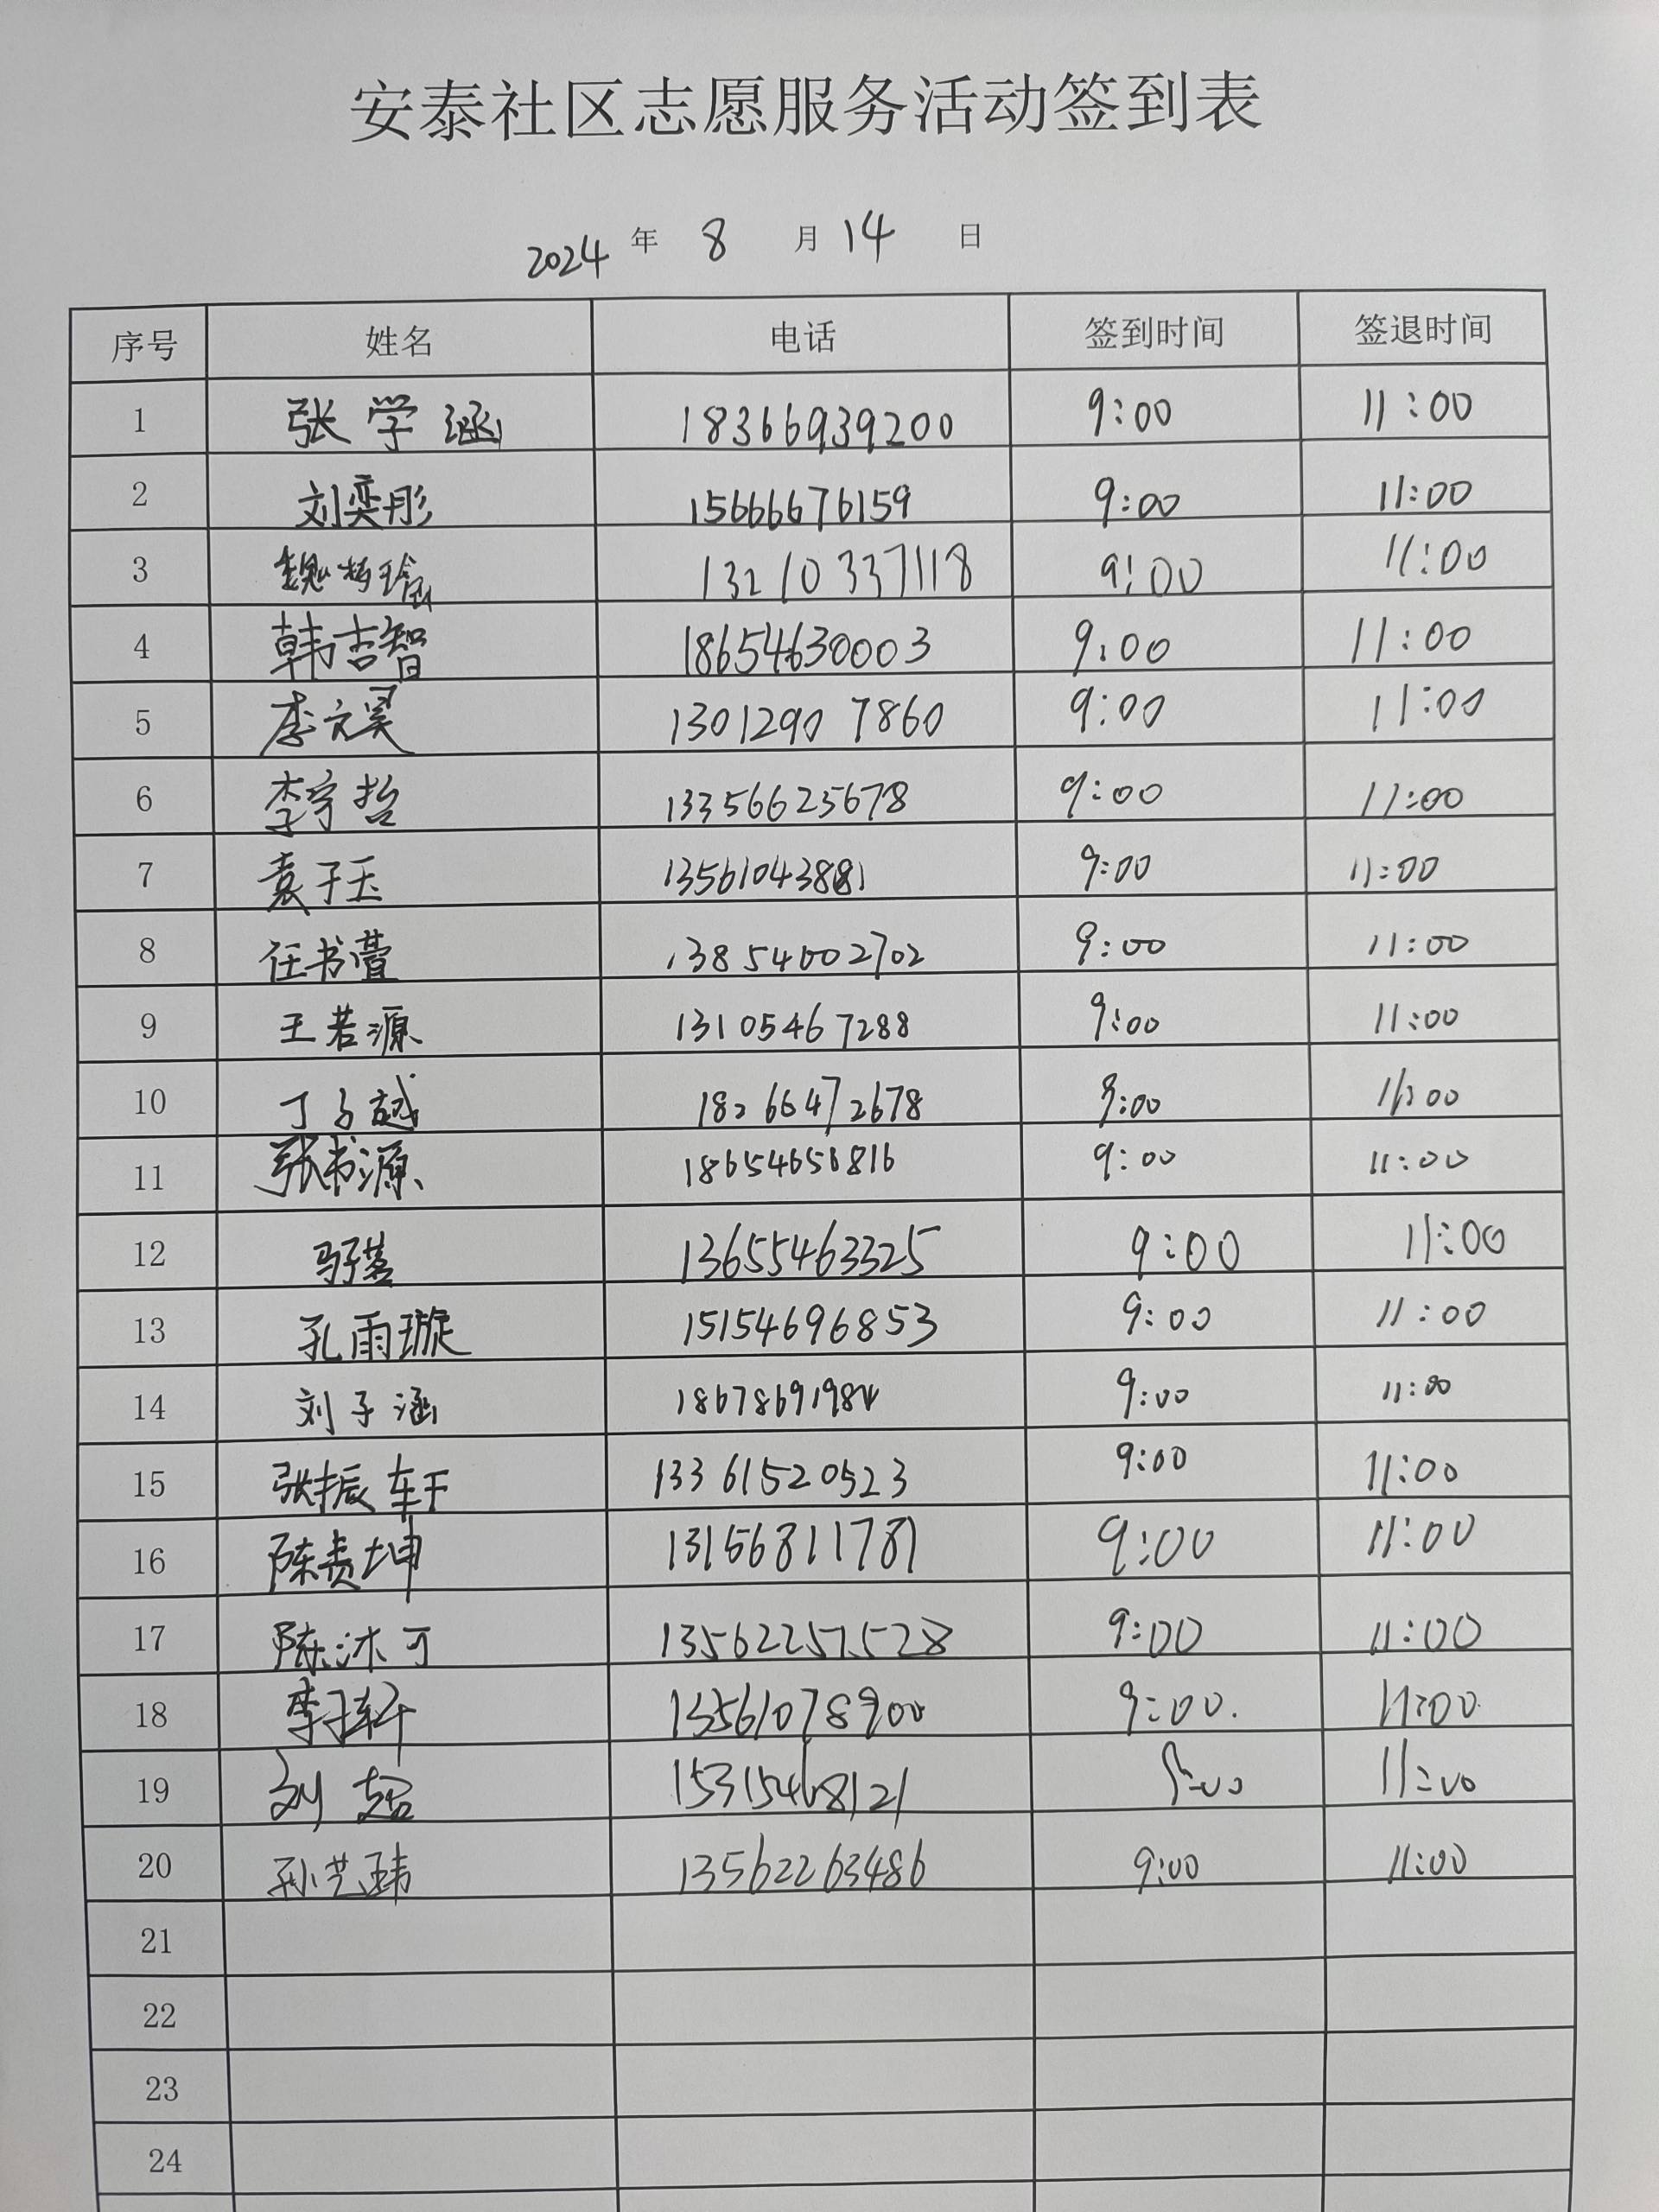 安泰社区志愿服务活动签到表
2024 年 8 月 14 日
序号 姓名 电话 签到时间 签退时间
1 张学涵 18366939200 9:00 11:00
2 刘奕彤 15666676159 9:00 11:00
3 13210337118 9:00 11:00
4 韩吉智 18654630003 9:00 11:00
5 李文昊 13012907860 9:00 11:00
6 李宇哲 13356625678 9:00 11:00
7 袁子玉 9:00 11:00
8 任书萱 13854002702 9:00 11:00
9 王若源 13105467288 9:00 11:00
10 丁子越 18266472678 9:00 11:00
11 张书源 18654656816 9:00 11:00
12 13655463325 9:00 11:00
13 孔雨璇 15154696853 9:00 11:00
14 刘子涵 18678691984 9:00 11:00
15 张振轩 13361520523 9:00 11:00
16 陈贵坤 13156811781 9:00 11:00
17 陈沐可 13562257528 9:00 11:00
18 李子轩 13561078900 9:00 11:00
19 刘超 15315468121 9:00 11:00
20 孙艺玮 13562263486 9:00 11:00
21
22
23
24